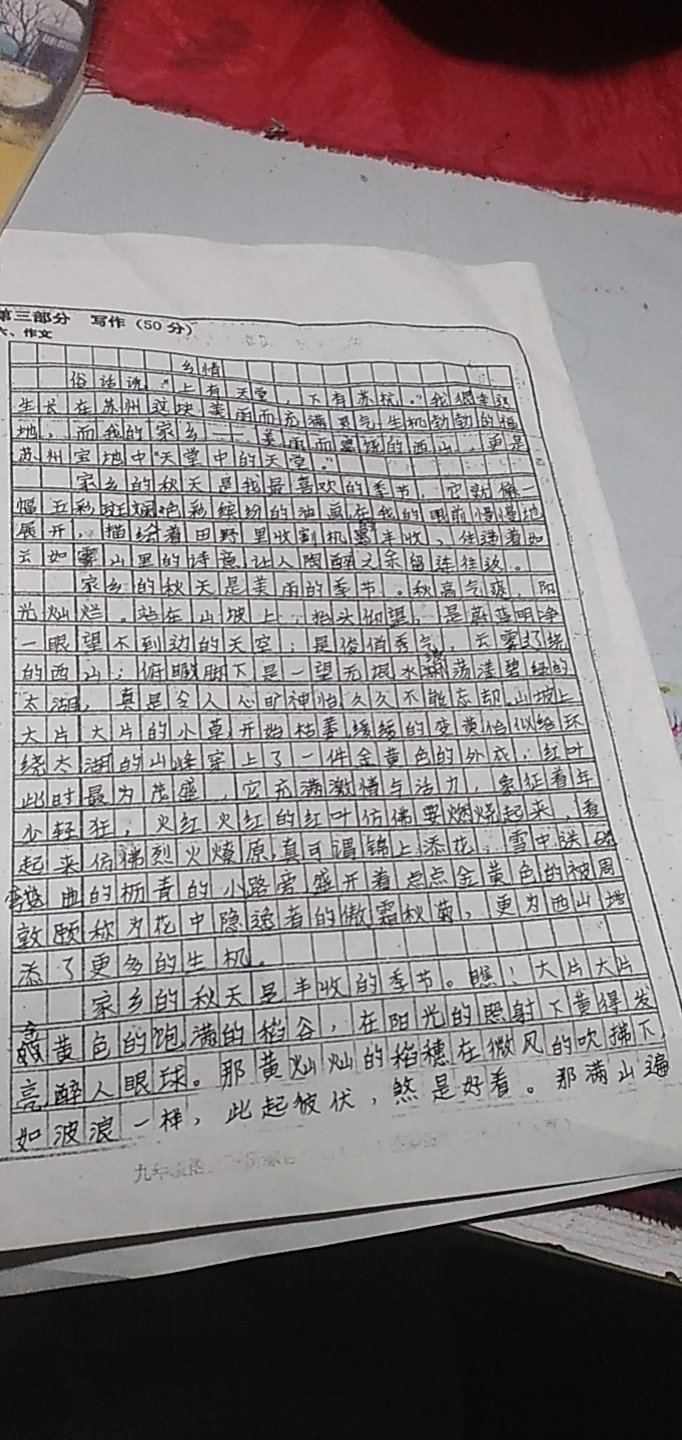 第三部分 写作（50分）
六、作文
乡情
俗话说“上有天堂，下有苏杭。”我很幸运
生长在苏州这块美丽而充满 气生机勃勃的福
地，而我的家乡——美丽而富饶的西山，更是
苏州宝地中“天堂中的天堂。”
家乡的秋天是我最喜欢的季节，它就像一
幅五彩斑斓色彩缤纷的油画在我的眼前慢慢地
展开，描绘着田野里收割机 丰收，传递着如
云如雾山里的诗意，让人陶醉之余留连往返。
家乡的秋天是美丽的季节。秋高气爽，阳
光灿烂。站在山坡上；抬头仰望，是蔚蓝明净
一眼望不到边的天空；是俊俏秀气，云雾缭绕
的西山；俯瞰脚下是一望无垠水 荡漾碧绿的
太湖，真是令人心旷神怡久久不能忘却。山坡上
大片大片的小草开始枯萎，缓缓的变黄恰似给环
绕太湖的山峰穿上了一件金黄色的外衣；红叶
此时最为茂盛，它充满激情与活力，象征着年
少轻狂，火红火红的红叶仿佛要燃烧起来，看
起来仿佛烈火燎原，真可谓锦上添花，雪中送
曲的柏青的小路旁盛开着点点金黄色的被周
敦颐称为花中隐逸者的傲霜秋菊，更为西山增
添了更多的生机。
家乡的秋天是丰收的季节。瞧！大片大片
金黄色的饱满的稻谷，在阳光的照射下黄得发
亮，醉人眼球。那黄灿灿的稻穗在微风的吹拂下，
如波浪一样，此起彼伏，煞是好看。那满山遍